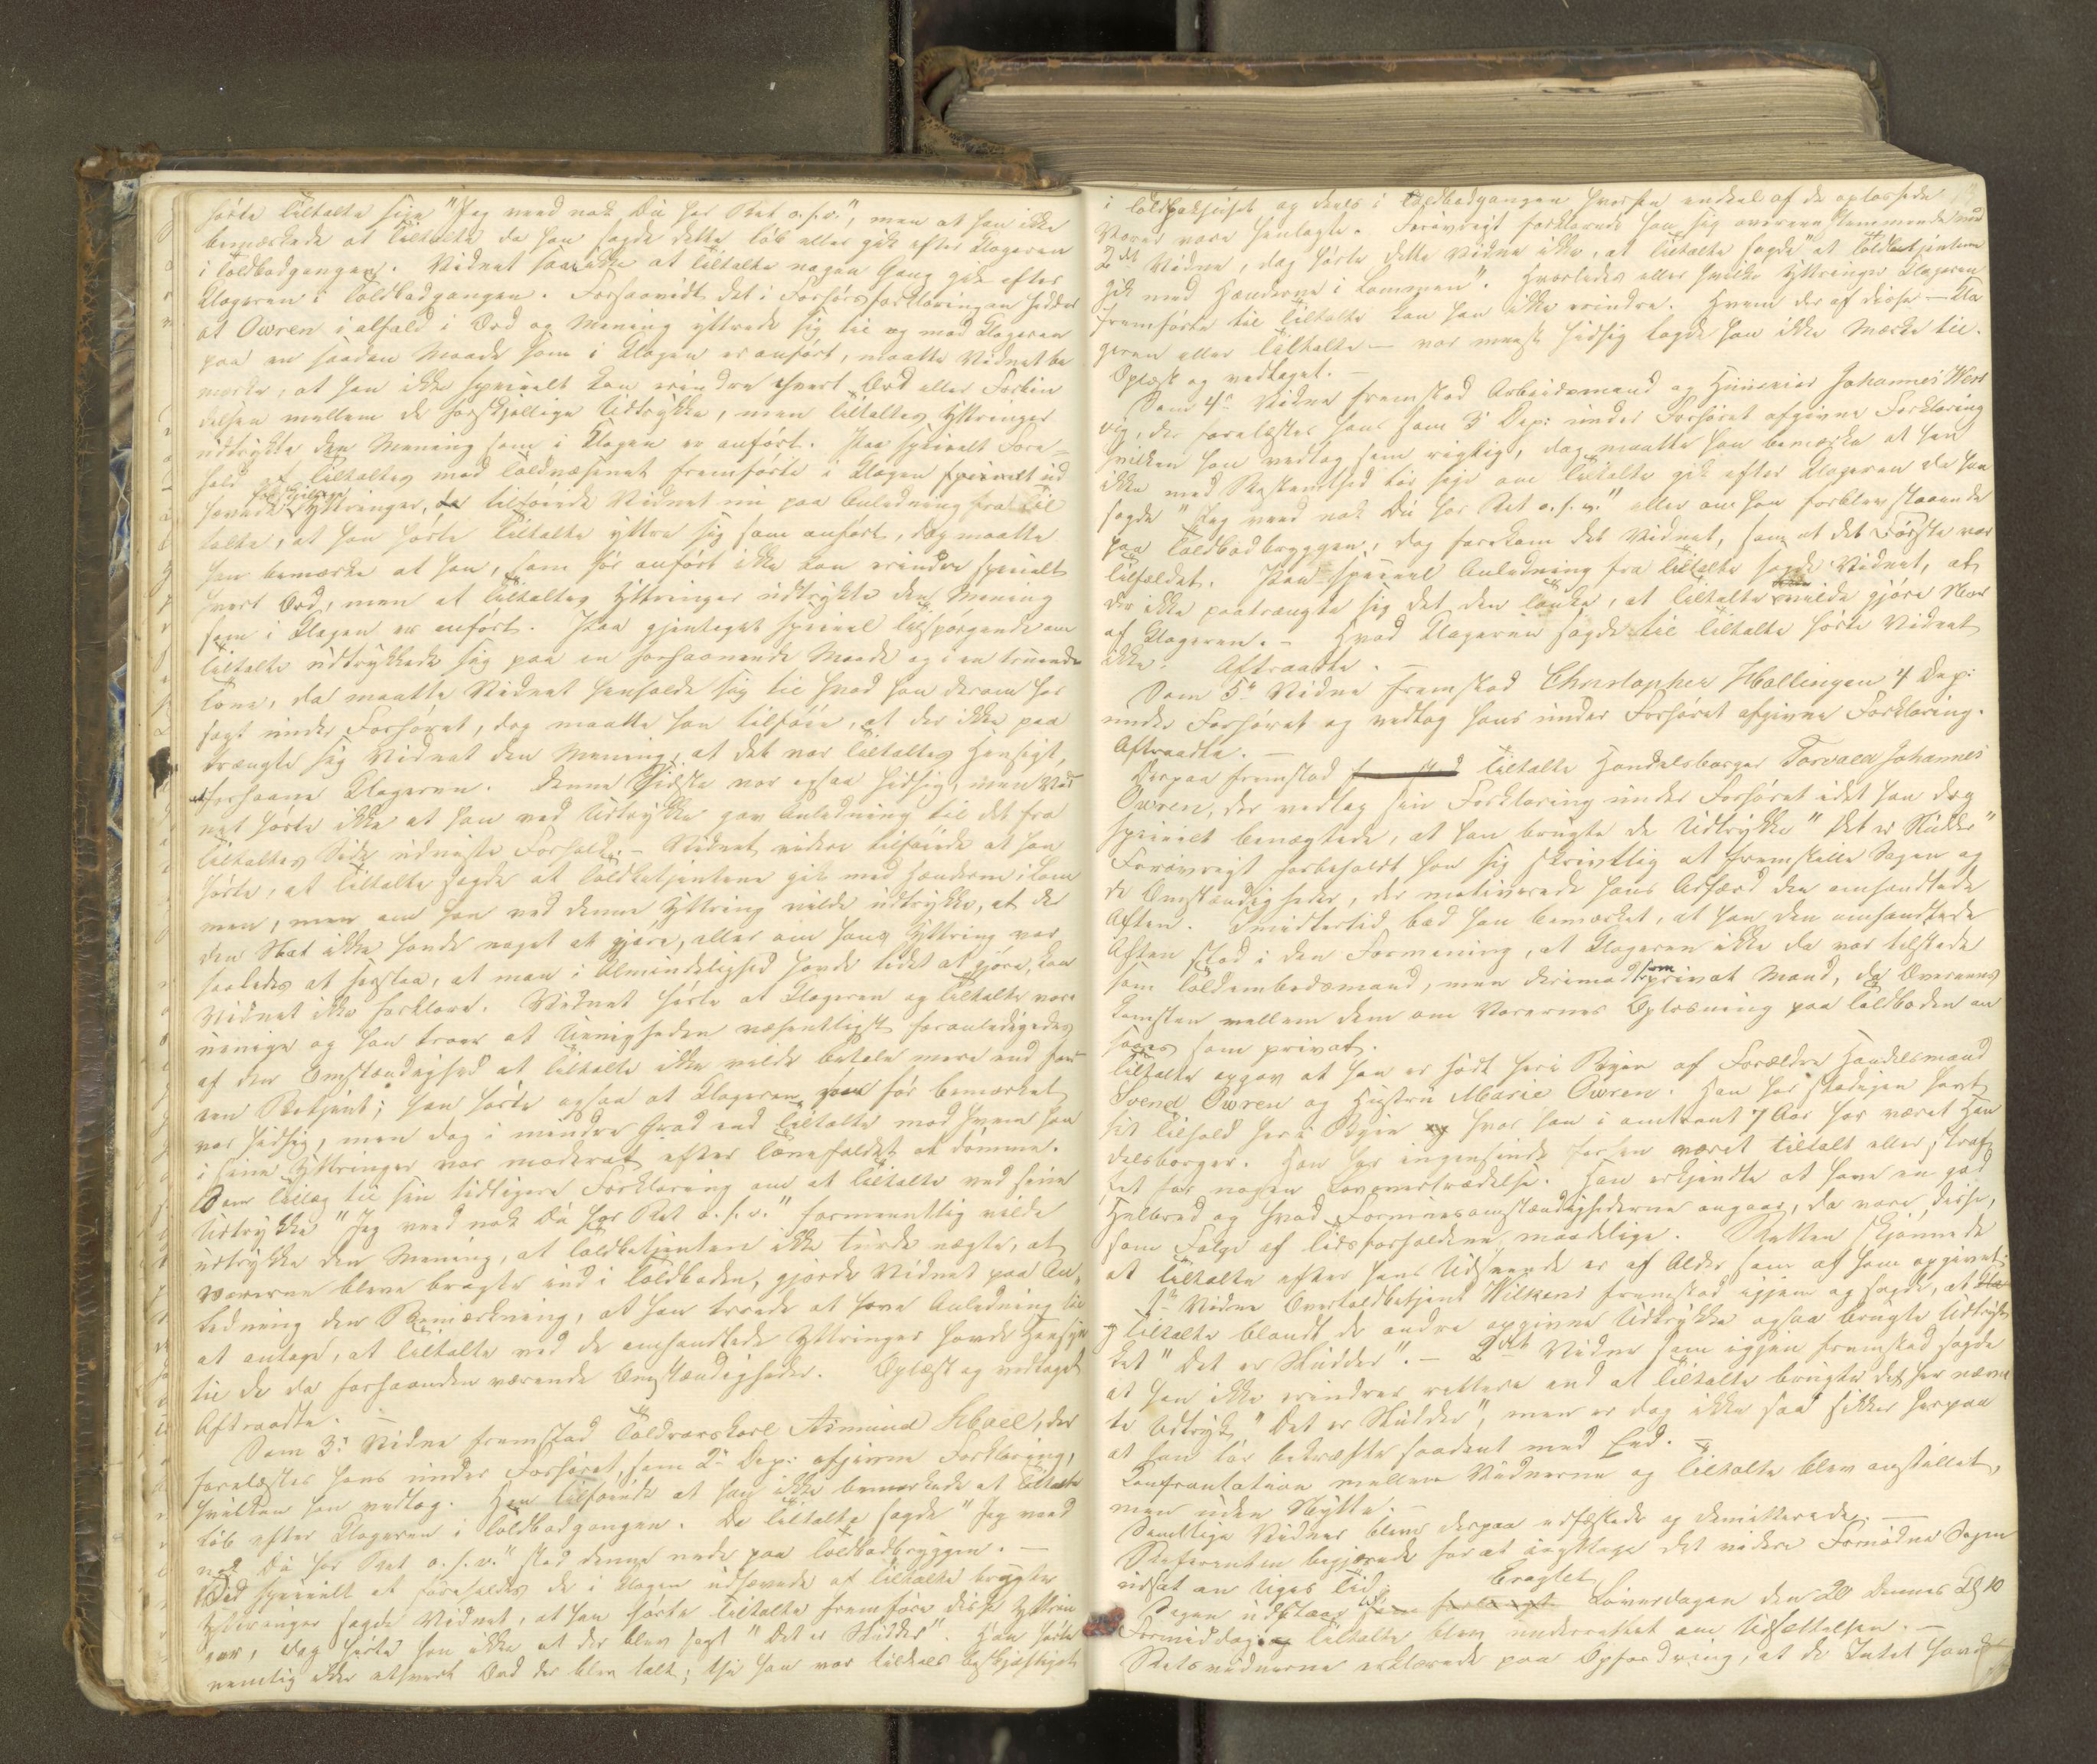 hørte Tiltalte sige "Jeg veed nok Du har Ret o.s.v.", men at han ikke
bemærkede at Tiltalte da han sagde dette løb eller gik efter Klageren
i Toldbodgangen. Vidnet saae ikke at Tiltalte nogen Gang gik efter
Klageren i Toldbodgangen. Forsaavidt det i Forhørsforklaringen hedder
at Owren i alfald i Ord og Mening yttrede sig til og mod Klageren
paa en saadan Maade som i Klagen er anført, maatte Vidnet be
mærke, at han ikke specielt kan erindre ethvert Ord eller Forbin
delsen mellem de forskjellige Udtrykke, men Tiltaltes Yttringer
udtrykte den Mening som i Klagen er anført. Paa specielt Fore-
hold af Tiltaltes mod Toldvæsenet fremførte i Klagen specielt ud
hævede forskjellige Yttringer, tilføiede Vidnet nu paa Anledning fra Til
talte, at han hørte Tiltalte yttre sig som anført, dog maatte
han bemærke at han, som før anført ikke kan erindre specielt
hvert Ord, men at Tiltaltes Yttringer udtrykte den Mening
som i Klagen er anført. Paa gjentaget speciel Tilspørgende om
Tiltalte udtrykkede sig paa en forhaanende Maade og i en truende
Tone, da maatte Vidnet henholde sig til hvad han derom har
sagt under Forhøret, dog maatte han tilføie, at der ikke paa
trængte sig Vidnet den Mening, at det var Tiltaltes Hensigt,
at forhaane Klageren. Denne Sidste var ogsaa hidsig, men Vid
net hørte ikke at han ved Udtrykke gav Anledning til det fra
Tiltaltes Side udviste Forhold. – Vidnet videre tilføiede at han
hørte, at Tiltalte sagde at Toldbetjentene gik med Hænderne i Lom
men, men om han ved denne Yttring vilde udtrykke, at de
den Nat ikke havde noget at gjøre, eller om hans Yttring var
saaledes at forstaa, at man i Almindelighed havde lidet at gjøre, kan
Vidnet ikke forklare. Vidnet hørte at Klageren og Tiltalte vare
uenige og han troer at Uenigheden væsentligst foranledigedes
af den Omstændighed at Tiltalte ikke vilde betale mere end for
een Betjent; han hørte ogsaa at Klageren, som før bemærket
var hidsig, men dog i mindre Grad end Tiltalte mod hvem han
i sine Yttringer var moderat efter Tonefaldet at dømme.
Som Tillæg til sin tidligere Forklaring om at Tiltalte ved sine
Udtrykke "Jeg veed nok Du har Ret o.s.v." formeentlig vilde
udtrykke den Mening, at Toldbetjenten ikke turde nægte, at
Varerne bleve bragte ind i Toldboden, gjorde Vidnet paa An,
ledning den Bemærkning, at han troede at have Anledning til
at antage, at Tiltalte ved de omhandlede Yttringer havde Hensyn
til de da forhaanden værende Omstændigheder. Oplæst og vedtaget
Aftraadte. –
Som 3die Vidne fremstod Toldroerskarl Asmund, der
forelæstes hans under Forhøret, som 2den Dep: afgivne Forklaring,
hvilken han vedtog. Han tilføiede at han ikke bemærkede at Tiltalte
løb efter Klageren i Toldbodgangen. Da Tiltalte sagde "Jeg veed
nok Du har Ret o.s.v." stod denne nede paa Toldbodbryggen. –
Ved specielt at foreholdes de i Klagen udhævede af Tiltalte brugte
Yttringer sagde Vidnet, at han hørte Tiltalte fremføre disse Yttrin
ger, dog hørte han ikke at der blev sagt "det er Skidder". Han hørte
nemlig ikke ethvert Ord der blev talt; thi han var tildels beskjæftiget
i Toldpakhuset og deels i Toldbodgangen hvorhen endeel af de oplossede
Varer vare henlagte. Forøvrigt forklarede han sig overeenstemmende med
2det Vidne, dog hørte dette Vidne ikke, at Tiltalte sagde "at Toldbetjentene
gik med Hænderne i Lommen". Hvorledes eller hvilke Yttringer Klageren
fremførte til Tiltalte kan han ikke erindre. Hvem der af disse – Kla
geren eller Tiltalte – var meest hidsig lagde han ikke Mærke til.
Oplæst og vedtaget. –
Som 4de Vidne fremstod Arbeidsmand og Huuseier Johannes West
vig, der forelæstes hans som 3die Dep: under Forhøret afgivne Forklaring
hvilken han vedtog som rigtig, dog maatte han bemærke at han
ikke med Bestemthed tør sige om Tiltalte gik efter Klageren da han
sagde "Jeg veed nok Du har Ret o.s.v." eller om han forblev staaende
paa Toldbodbryggen, dog forekom det Vidnet, som at det Første var
Tilfældet. Paa speciel Anledning fra Tiltalte sagde Vidnet, at
der ikke paatrængte sig det den Tanke, at Tiltalte vilde gjøre Nar
af Klageren. – Hvad Klageren sagde til Tiltalte hørte Vidnet
ikke. Aftraadte. –
Som 5te Vidne fremstod Christopher Hollingen 4 Dep:
under Forhøret og vedtog hans under Forhøret afgivne Forklaring.
Aftraadte. –
Derpaa fremstod Tiltalte Handelsborger Torvald Johannes
Owren, der vedtog sin Forklaring under Forhøret idet han dog
specielt benægtede, at han brugte de Udtrykke "det er Skidder"
Forøvrigt forbeholdt han sig skriftlig at fremstille Sagen og
de Omstændigheder, der motiverede hans Adfærd den omhandlede
Aften. Imidlertid bad han bemærket, at han den omhandlede
Aften stod i den Formening, at Klageren ikke da var tilstede
som Toldembedsmand, men derimod som privat Mand, da Overeens
komsten mellem dem om Varernes Oplosning paa Toldboden an
saaes som privat.
Tiltalte opgav at han er født her i Byen af Forældre Handelsmand
Svend Owren og Hustru Marie Owren. Han har stedsen havt
sit Tilhold her i Byen hvor han i omtrent 7 Aar har været Han
delsborger. Han har ingensinde forhen været tiltalt eller straf
fet for nogen Lovovertrædelse. Han erkjendte at have en god
Helbred og hvad Formuesomstændighederne angaar, da vare disse,
som Følge af Tidsforholdene, maadelige. Retten skjønnede
at Tiltalte efter hans Udseende er af Alder som af ham opgivet.
1ste Vidne Overtoldbetjent Wilkens fremstod igjen og sagde, at
Tiltalte blandt de andre opgivne Udtrykke ogsaa brugte Udtryk
ket "det er Skidder". – 2det Vidne som igjen fremstod sagde
at han ikke erindrer rettere end at Tiltalte brugte det her nævn
te Udtryk, "det er Skidder", men er dog ikke saa sikker herpaa
at han tør bekræfte saadant med Eed. –
Confrontation mellem Vidnerne og Tiltalte blev anstillet,
men uden Nytte. –
Samtlige Vidner bleve derpaa edfæstede og demitterede. –
Referenten begjærede for at iagttage det videre Fornødne Sagen
udsat en Uges Tid.
Eragtet
Sagen udstaaer til Løverdagen den 20 dennes Kl 10
Formiddag. Tiltalte blev underrettet om Udsættelsen. –
Retsvidnerne erklærede paa Opfordring, at de Intet havde